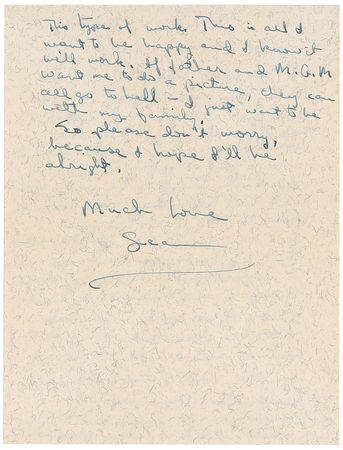 This type of work. This is all I
want to be happy and I know it
will work. If father and M.G.M
want me to do a picture, they can
all go to hell – I just want to be
with my family.
So please don't worry,
because I hope I'll be
alright.
Much Love
Sean